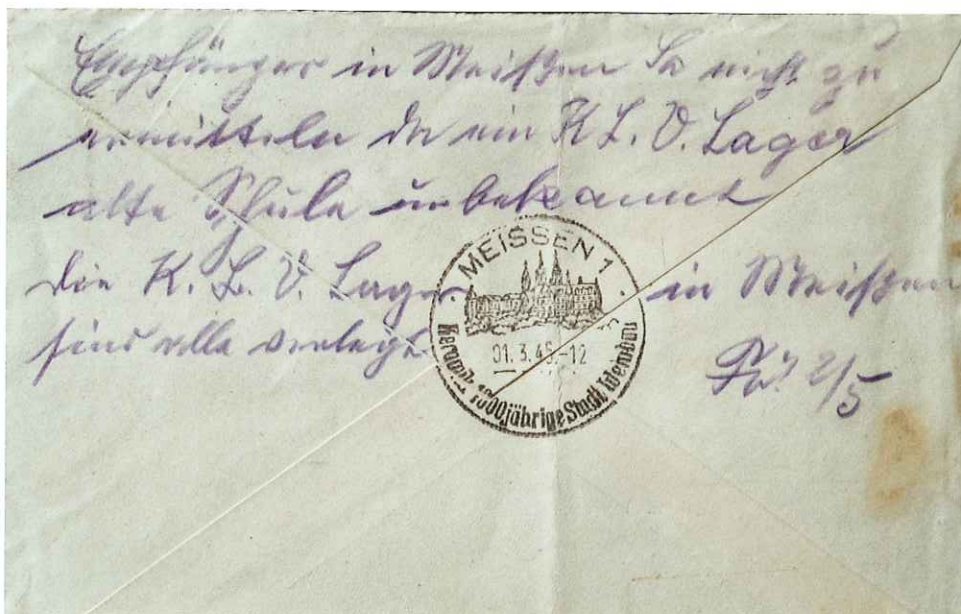 Empfänger in Meißen Sa nicht zu
ermitteln da ein K L. V. Lager
alte Schule unbekannt
die K. L. V. Lager in Meißen
sind alle verlegt
MEISSEN 1
01.3.45.-12
Keramik 1000jährige Stadt Weinbau